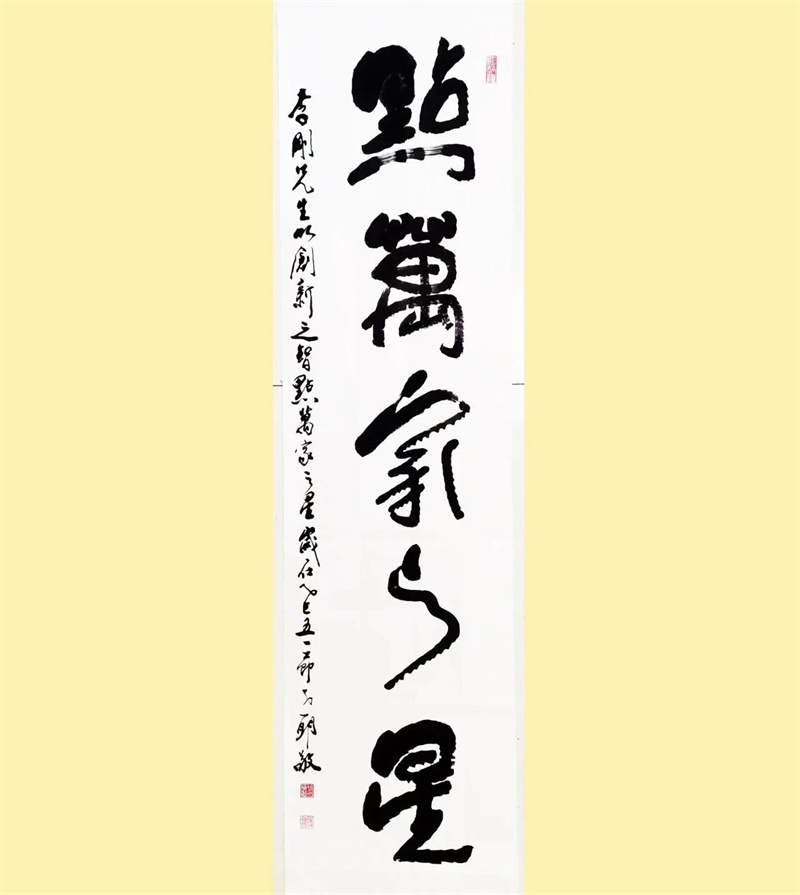 點萬家之星
喬剛先生以創新之智點萬家之星歲在乙巳五一節敬